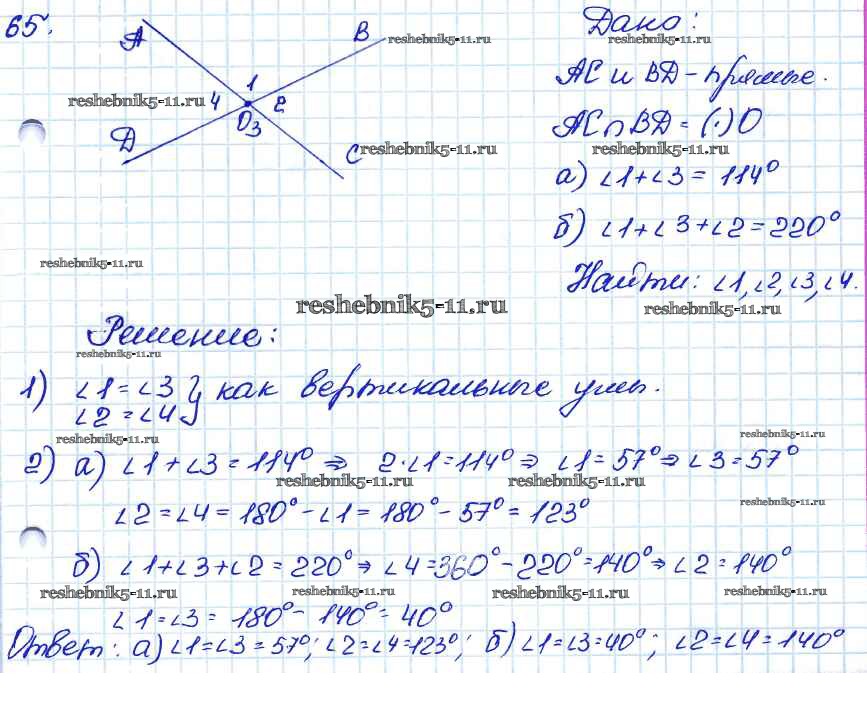 65.
A
B
Дано:
reshebnik5-11.ru
reshebnik5-11.ru
AC и BD - прямые.
1
reshebnik5-11.ru
4
2
O
3
AC∩BD = (·)O
D
C
reshebnik5-11.ru
reshebnik5-11.ru
а) ∠1+∠3 = 114°
б) ∠1+∠3+∠2=220°
reshebnik5-11.ru
Найти: ∠1, ∠2, ∠3, ∠4.
reshebnik5-11.ru
reshebnik5-11.ru
Решение:
reshebnik5-11.ru
1) ∠1=∠3 } как вертикальные углы.
∠2=∠4
reshebnik5-11.ru
reshebnik5-11.ru
2) а) ∠1+∠3=114° ⇒ 2·∠1=114° ⇒ ∠1=57° ⇒ ∠3=57°
reshebnik5-11.ru
reshebnik5-11.ru
reshebnik5-11.ru
∠2=∠4=180°-∠1=180°-57°=123°
б) ∠1+∠3+∠2=220° ⇒ ∠4=360°-220°=140° ⇒ ∠2=140°
reshebnik5-11.ru
reshebnik5-11.ru
reshebnik5-11.ru
reshebnik5-11.ru
∠1=∠3=180°-140°=40°
Ответ: а) ∠1=∠3=57°; ∠2=∠4=123°; б) ∠1=∠3=40°; ∠2=∠4=140°